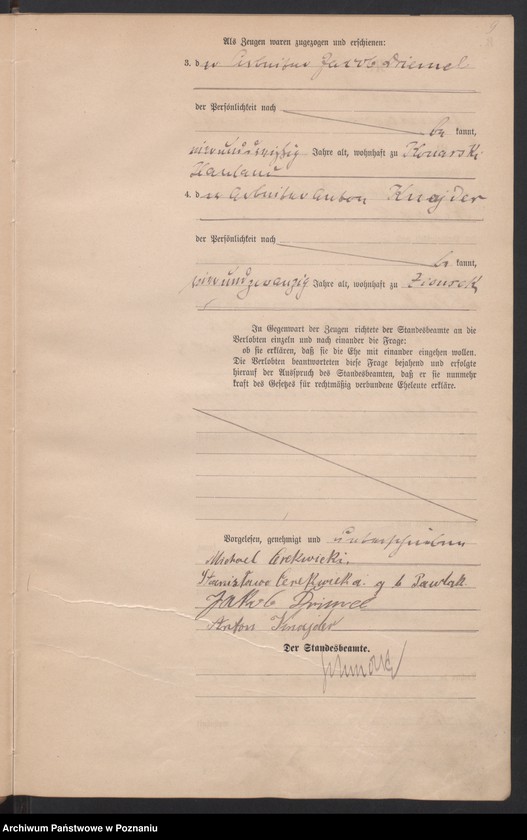 Als Zeugen waren zugezogen und erschienen:
3. der Arbeiter Jacob Driemel
der Persönlichkeit nach
be kannt,
vierunddreißig Jahre alt, wohnhaft zu Konarskie
Hauland
4. der Arbeiter Anton Knajder
der Persönlichkeit nach
be kannt,
vierundzwanzig Jahre alt, wohnhaft zu
In Gegenwart der Zeugen richtete der Standesbeamte an die
Verlobten einzeln und nach einander die Frage:
ob sie erklären, daß sie die Ehe mit einander eingehen wollen.
Die Verlobten beantworteten diese Frage bejahend und erfolgte
hierauf der Ausspruch des Standesbeamten, daß er sie nunmehr
kraft des Gesetzes für rechtmäßig verbundene Eheleute erkläre.
Vorgelesen, genehmigt und unterschrieben
Michael Cerekwicki.
Stanisława Cerekwicka g b Pawlak
Jakob
Anton Knajder
Der Standesbeamte.
Archiwum Państwowe w Poznaniu